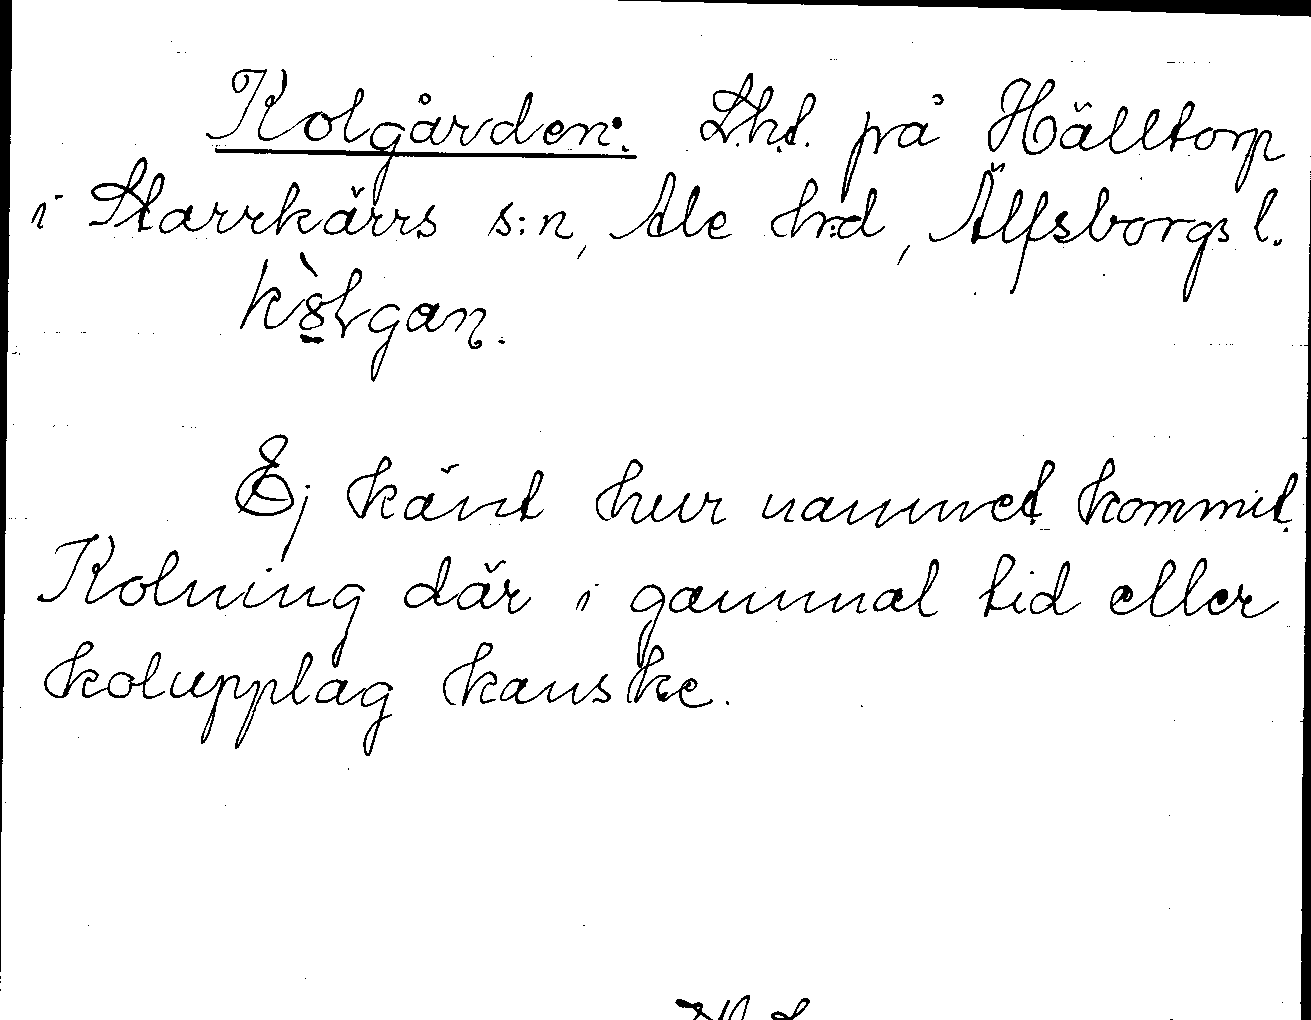 Kolgården: Lht. på Hälltorp
i Starrkärrs s:n, Ale h:d, Älfsborgs l.
Ej känt hur namnet kommit.
Kolning där i gammal tid eller
kolupplag kanske.